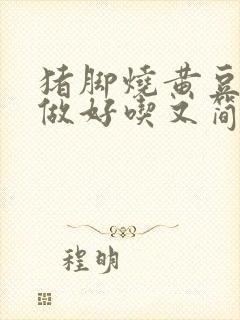 猪脚燒黄豆
做好喫又简
程明